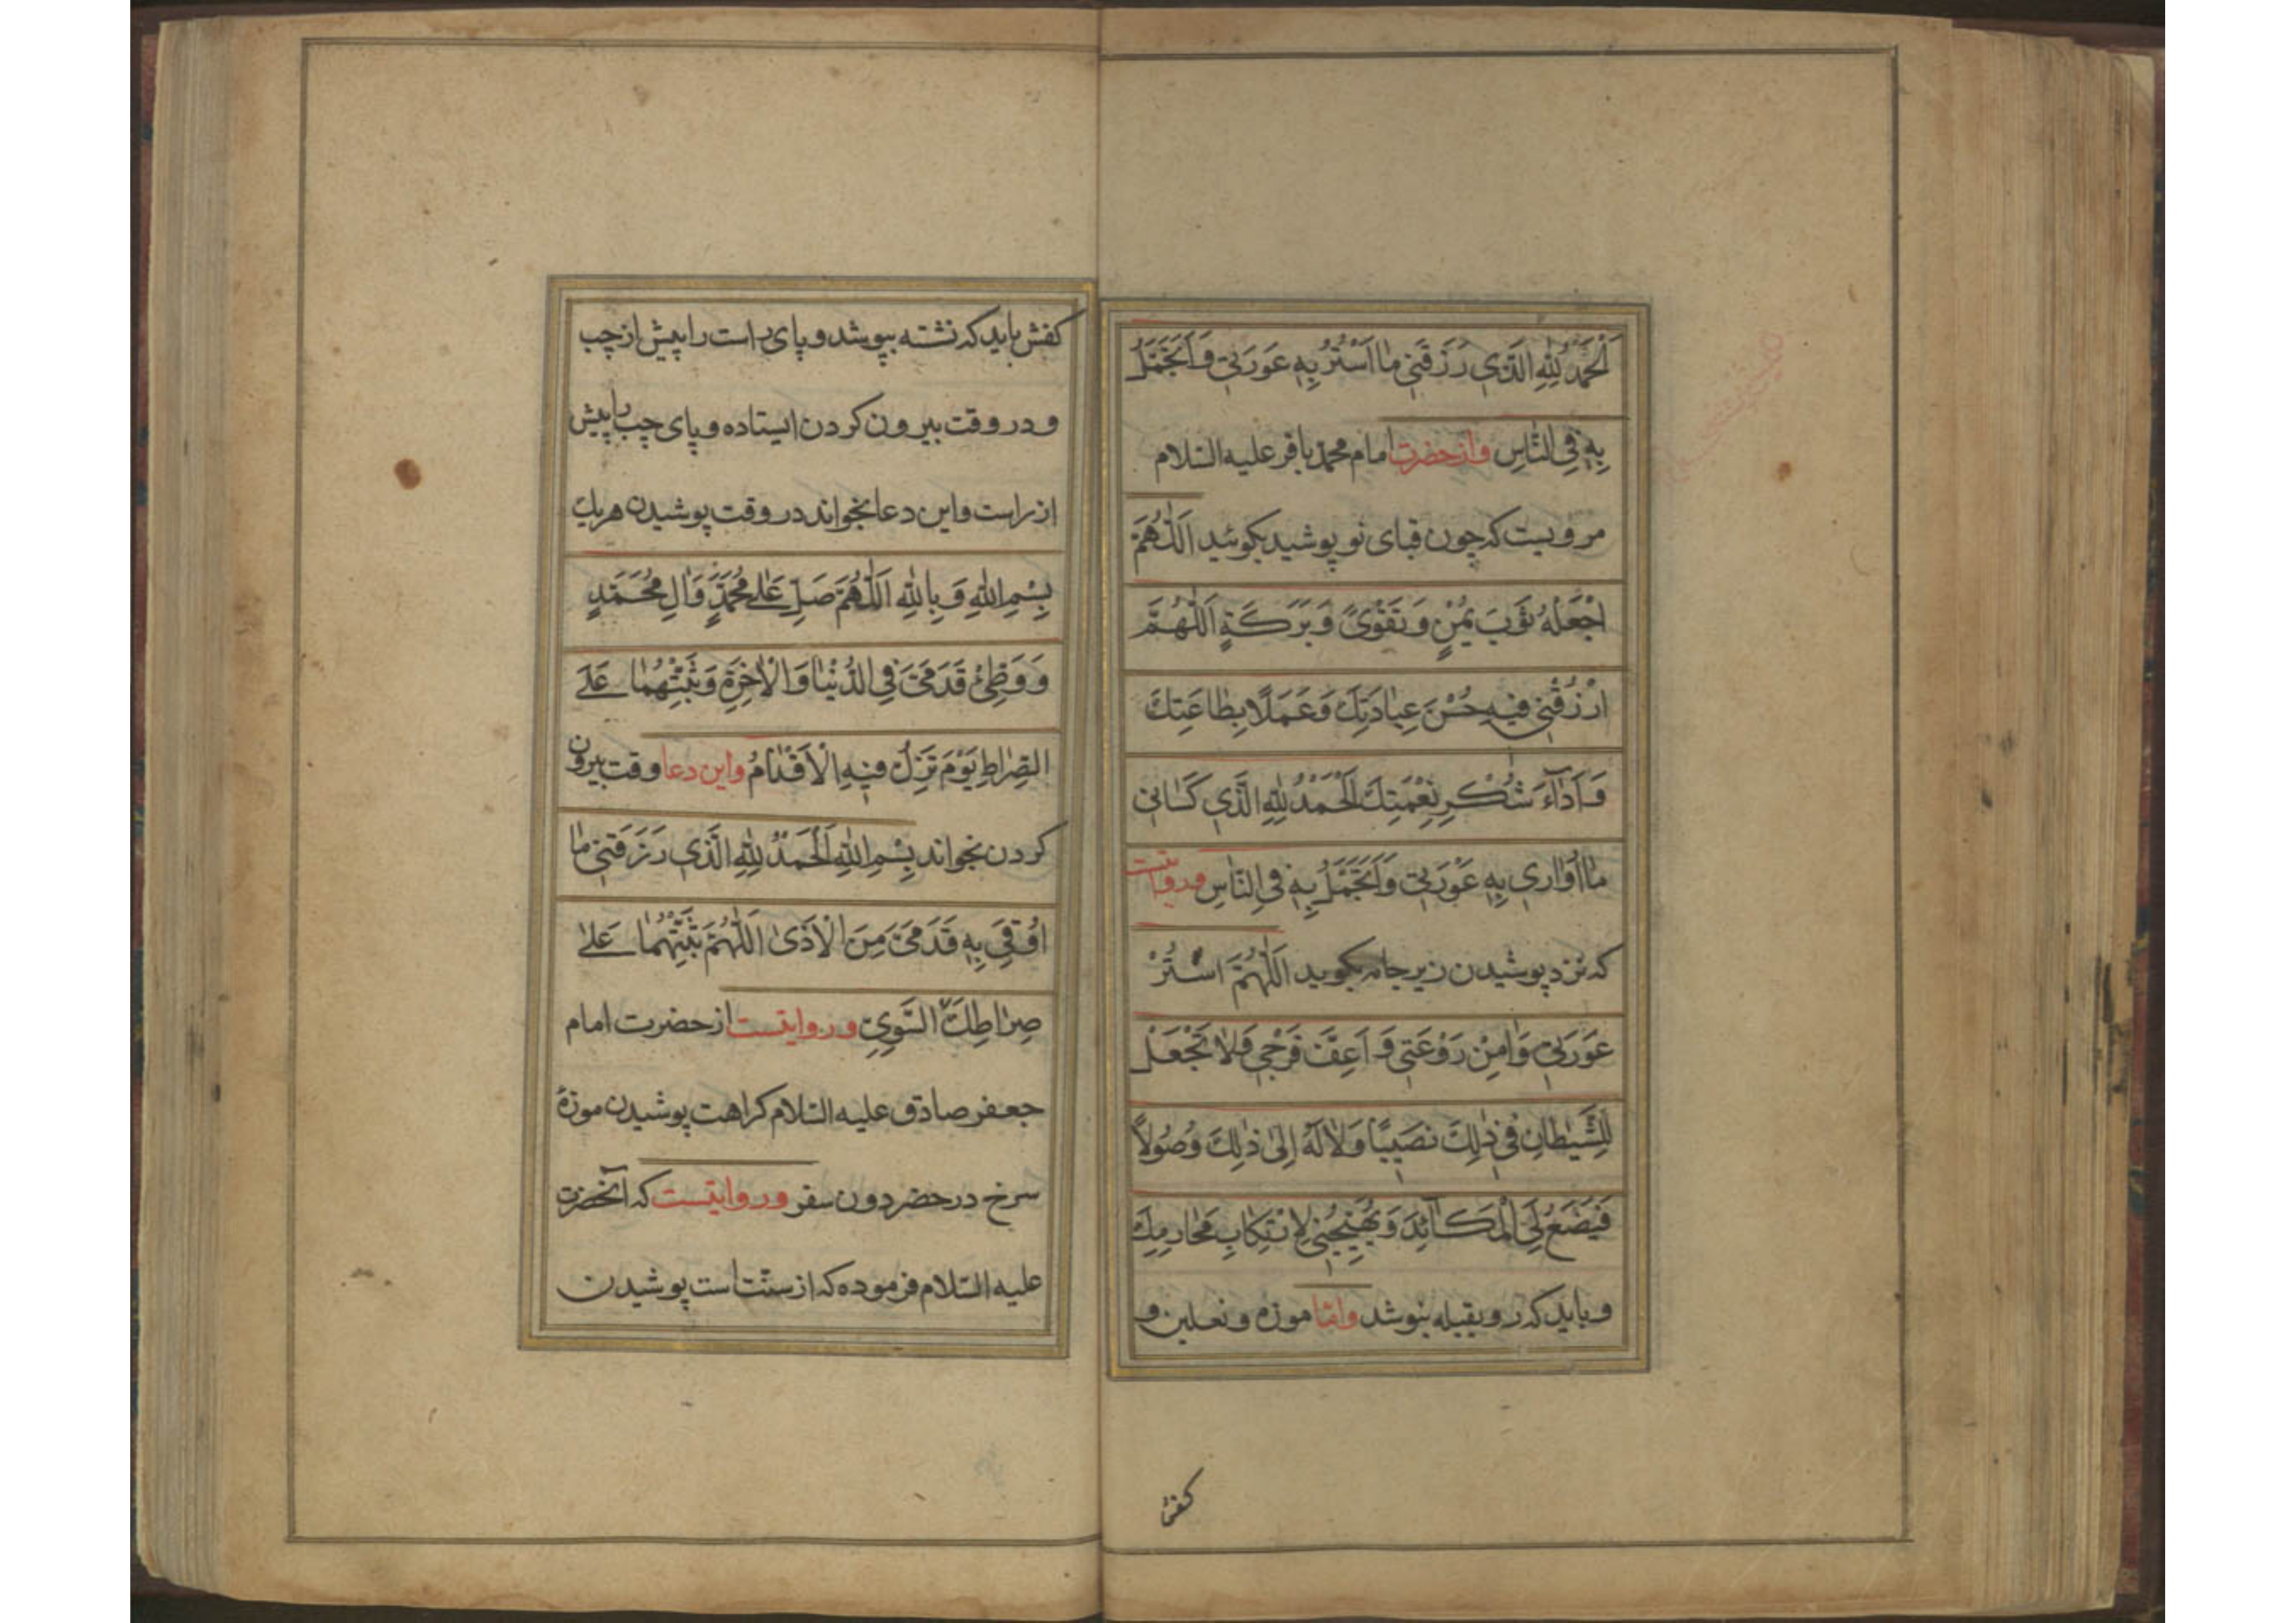 اَلْحَمْدُ لِلّٰهِ الَّذِي رَزَقَنِي مٰا اَسْتُرُ بِهِ عَورَتِي وَ اَتَجَمَّلُ
بِهِ فِي النّٰاسِ و از حضرت امام محمد باقر علیه السلام
مرویست که چون قبای نو پوشید بکوئید اَللّٰهُمَّ
اجْعَلْهُ ثَوبَ يُمْنٍ وَ تَقْوىً وَ بَرَكَةٍ اَللّٰهُمَّ
ارْزُقْنِي فِيهِ حُسْنَ عِبٰادَتِكَ وَ عَمَلًا بِطٰاعَتِكَ
وَ اَدٰآءَ شُكْرِ نِعْمَتِكَ اَلْحَمْدُ لِلّٰهِ الَّذِي كَسٰانِي
مٰا اُوٰارِي بِهِ عَوْرَتِي وَ اَتَجَمَّلُ بِهِ فِي النّٰاسِ و روایتست
که نزد پوشیدن زیر جامه بکوید اَللّٰهُمَّ اسْتُرْ
عَوْرَتِي وَ اٰمِنْ رَوْعَتِي وَ اَعِفَّ فَرْجِي وَ لٰا تَجْعَلْ
لِلشَّيْطٰانِ فِي ذٰلِكَ نَصِيبًا وَ لٰا لَهُ اِلىٰ ذٰلِكَ وُصُولًا
فَيَضَعَ لِيَ الْمَكَآئِدَ وَ يُهَيِّجَنِي لِارْتِكٰابِ مَحٰارِمِكَ
و باید که رو بقبله نپوشد و امّا موزه و نعلین و
کفش
کفش باید که نشته بپوشد و پای راست را پیش از چب
و در وقت بیرون کردن ایستاده و پای چب را پیش
از راست و این دعا بخواند در وقت پوشیدن هر یك
بِسْمِ اللّٰهِ وَ بِاللّٰهِ اَللّٰهُمَّ صَلِّ عَلىٰ مُحَمَّدٍ وَ اٰلِ مُحَمَّدٍ
وَ وَطِّئْ قَدَمَيَّ فِي الدُّنْيٰا وَ الْاٰخِرَةِ وَ ثَبِّتْهُمٰا عَلَى
الصِّرٰاطِ يَوْمَ تَزِلُّ فِيهِ الْاَقْدٰامُ و این دعا وقت بیرون
کردن بخواند بِسْمِ اللّٰهِ اَلْحَمْدُ لِلّٰهِ الَّذِي رَزَقَنِي مٰا
اُوقِيَ بِهِ قَدَمَيَّ مِنَ الْاَذىٰ اَللّٰهُمَّ ثَبِّتْهُمٰا عَلىٰ
صِرٰاطِكَ السَّوِيِّ و روایتست از حضرت امام
جعفر صادق علیه السلام کراهت پوشیدن موزهٔ
سرخ در حضر دون سفر و روایتست که آنحضرت
علیه السّلام فرموده که از سنّت است پوشیدن